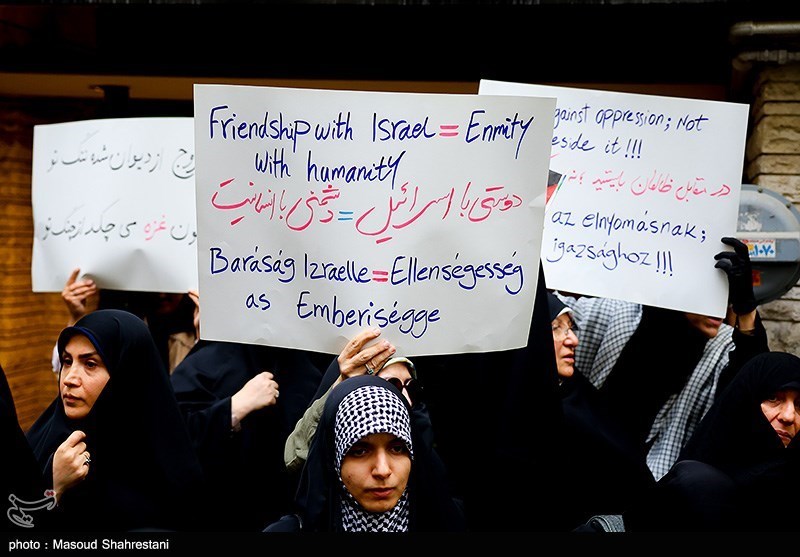 روج از دیوان شده تنگ نو
ون غزه می چکد از چنگ نو
Friendship with Israel = Enmity
with humanity
دوستی با اسرائیل = دشمنی با انسانیت
Baráság Izraelle = Ellenségesség
as Emberiségge
gainst oppression; Not
eside it !!!
در مقابل ظالمان بایستید نه
az elnyomásnak;
igazsághoz !!!
photo : Masoud Shahrestani